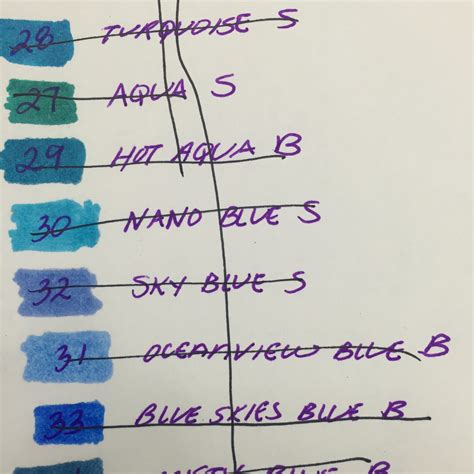 28 TURQUOISE S
27 AQUA S
29 HOT AQUA B
30 NANO BLUE S
32 SKY BLUE S
31 OCEANVIEW BLUE B
33 BLUE SKIES BLUE B
BLUE B